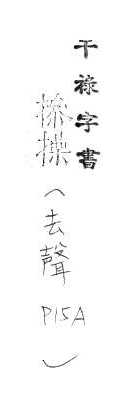 干祿字書
操
(去聲
P15A
)